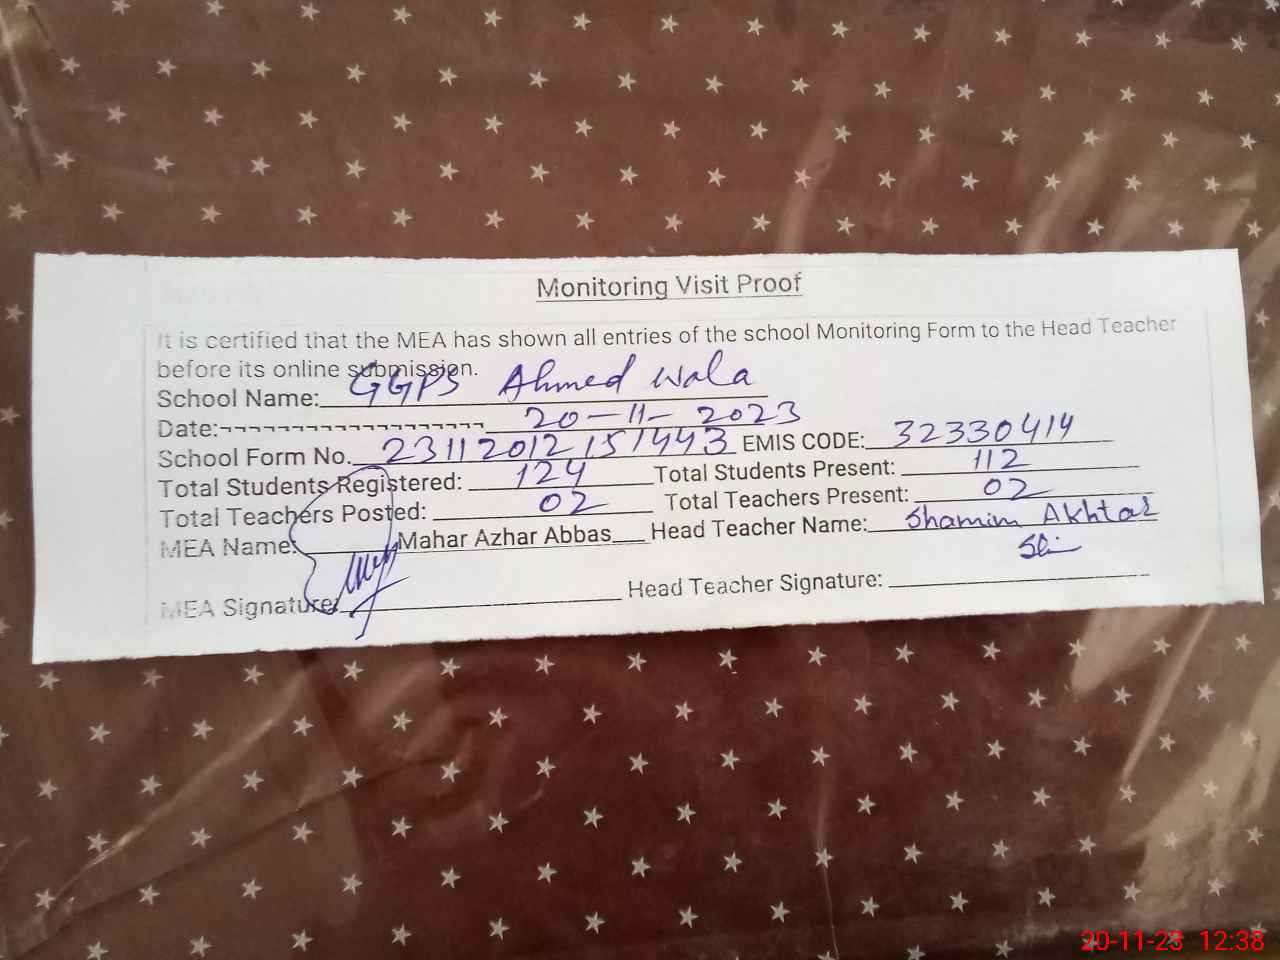 Monitoring Visit Proof
It is certified that the MEA has shown all entries of the school Monitoring Form to the Head Teacher
before its online submission.
School Name: GGPS Ahmed Wala
Date: 20-11-2023
School Form No. 23112012151443 EMIS CODE: 32330414
Total Students Registered: 124 Total Students Present: 112
Total Teachers Posted: 02 Total Teachers Present: 02
MEA Name: Mahar Azhar Abbas Head Teacher Name: Shamim Akhtar
MEA Signature: Head Teacher Signature:
20-11-23 12:38